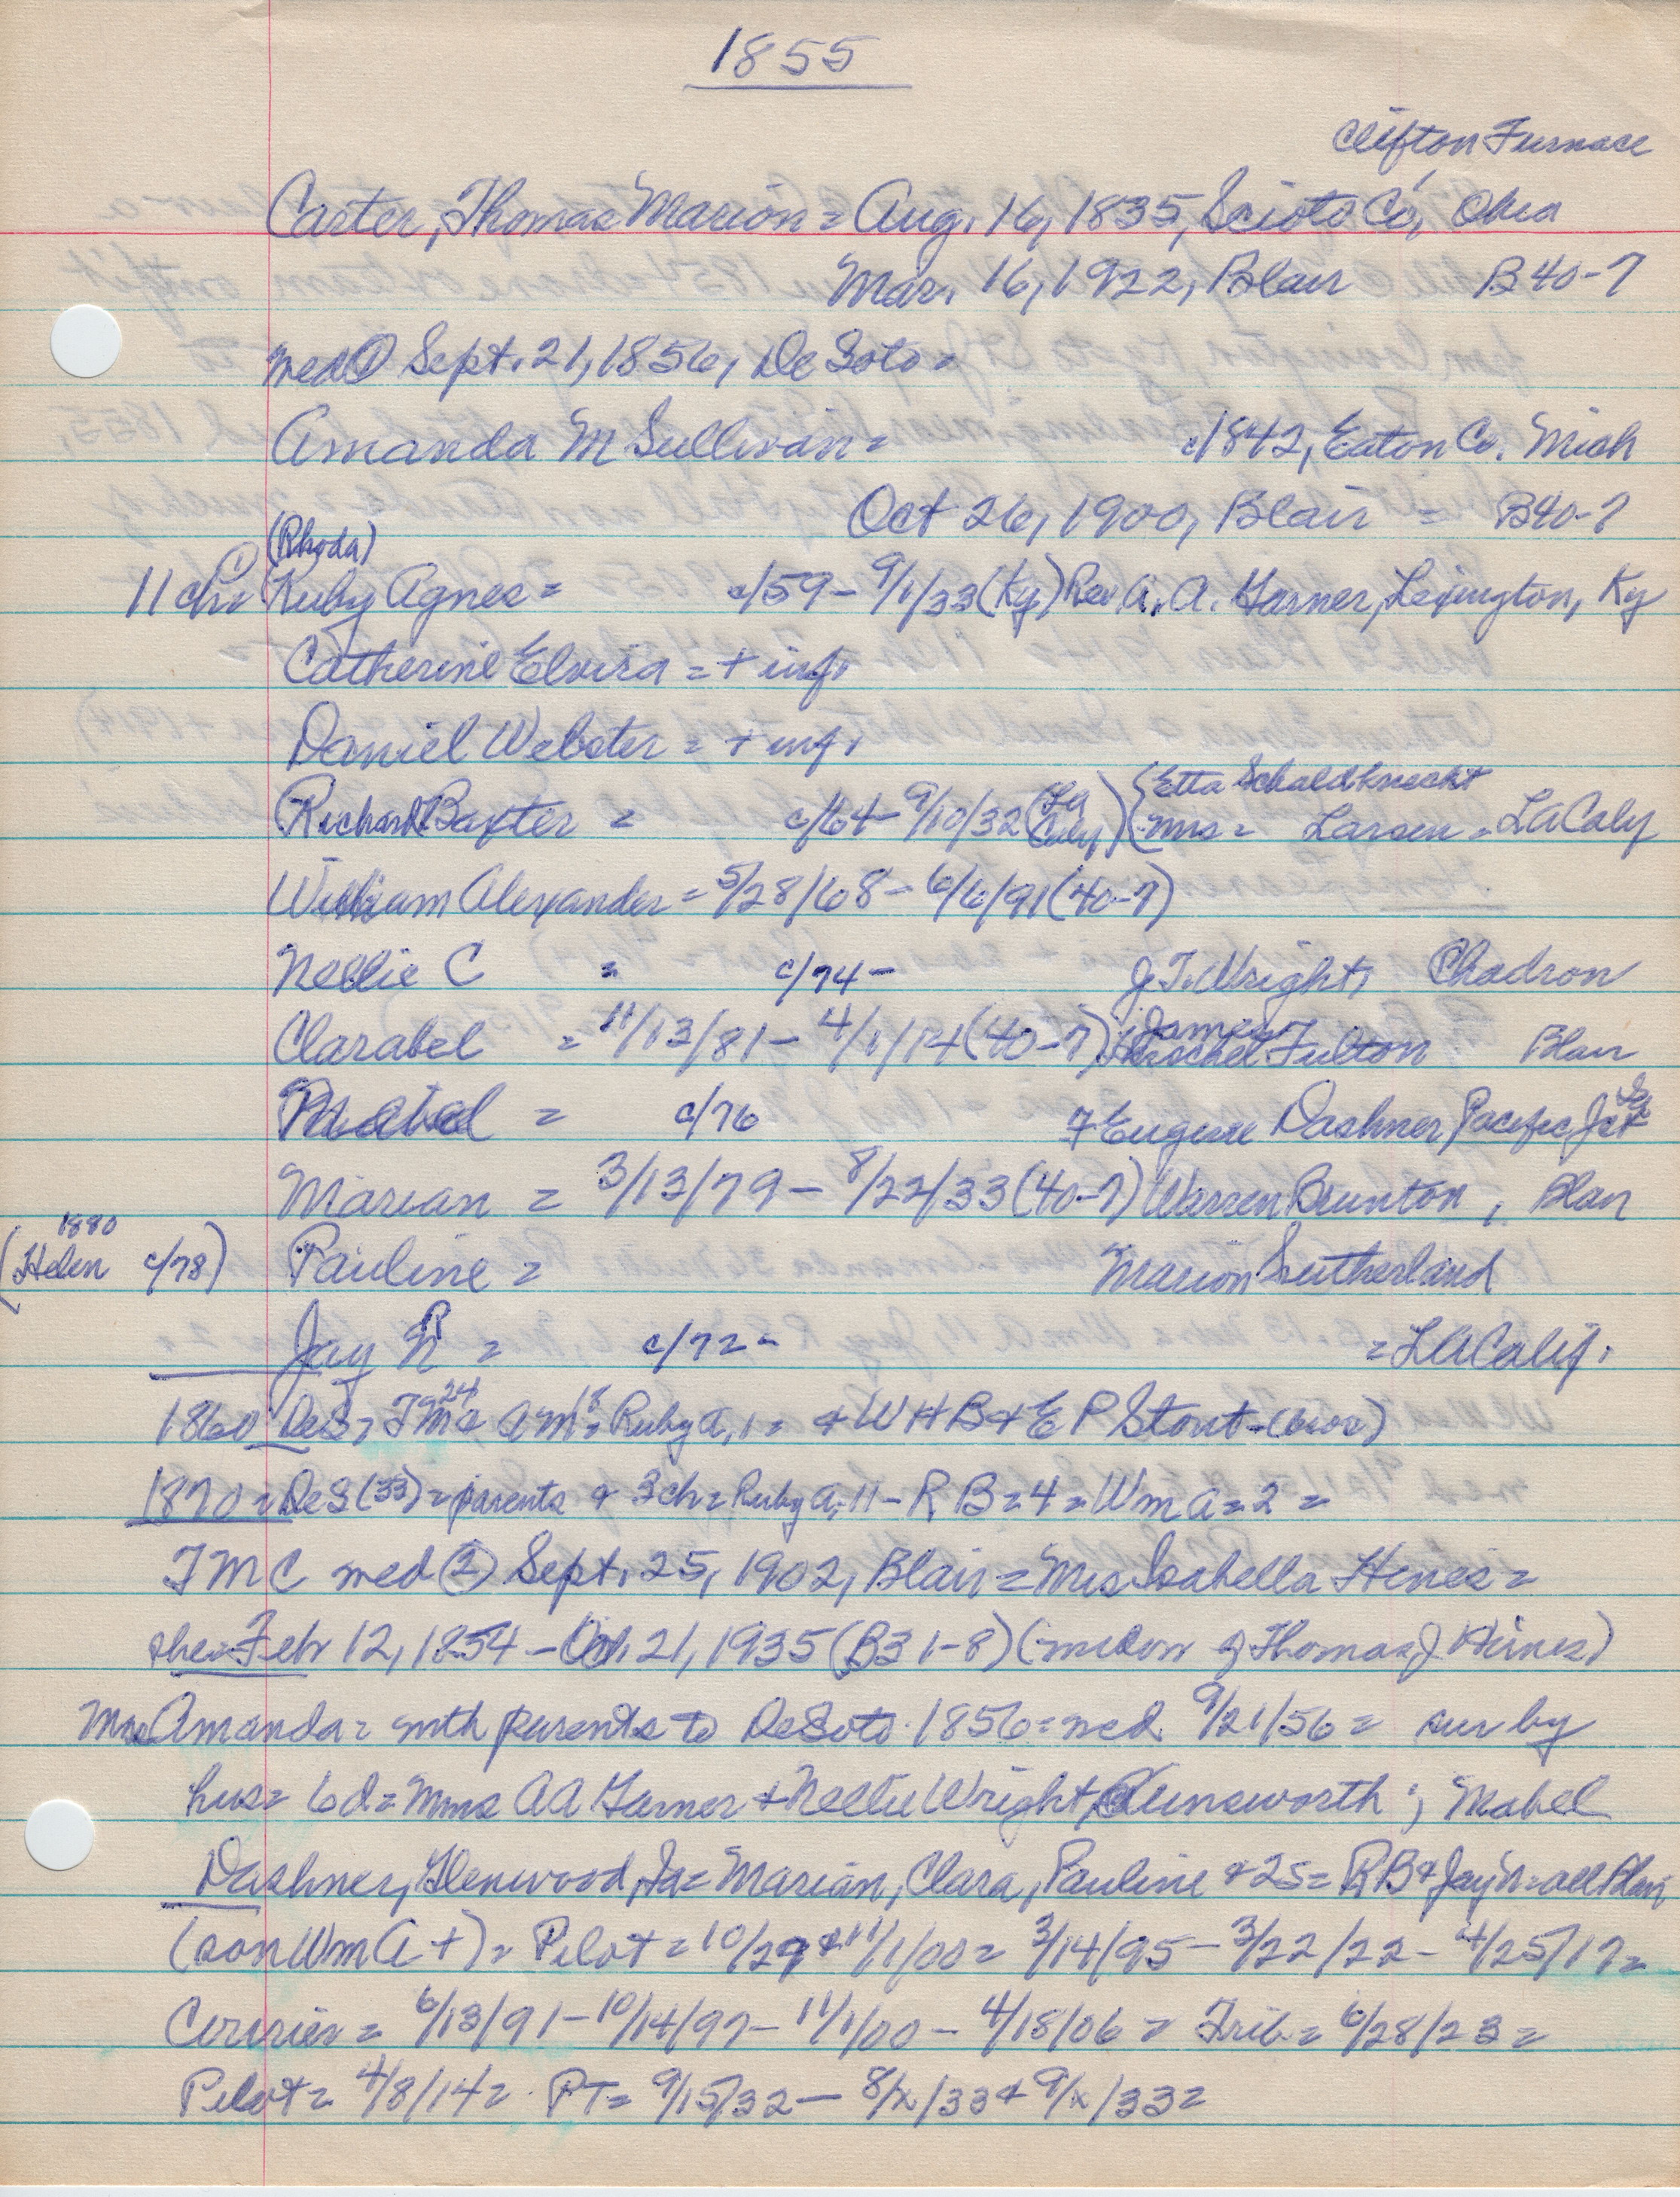 1855
Clifton Furnace
Carter, Thomas Marion = Aug. 16, 1835, Scioto Co, Ohio
Mar. 16, 1922, Blair B 40-7
med ① Sept. 21, 1856, De Soto =
Amanda M Sullivan = c/1842, Eaton Co. Mich
Oct 26, 1900, Blair = B40-7
(Rhoda)
11 ch = ① Ruby Agnes = c/59 - 9/1/33 (Ky) Rev A. A. Garner, Lexington, Ky
Catherine Elvira = + inf.
Daniel Webster = + inf.
Richard Baxter = c/64 - 9/10/32 (La Caly) { Etta Schaldknecht
mrs = Larsen = LA Caly
William Alexander = 5/28/68 - 6/6/91 (40-7)
Nellie C = c/74 - J T. Wright, Chadron
Clarabel = 11/13/81 - 4/1/14 (40-7) James Herschel Fulton Blair
Mabel = c/76 7 Eugene Dashner Pacific Jct Ia
Marian = 3/13/79 - 8/22/33 (40-7) Warren Brunton, Blair
1880
(Helen c/78) Pauline = Marion Sutherland
Jay N = c/72 - = LA Calif.
1860 DeS, TM 24 & AM 18 = Ruby A, 1 = & W H B & E P Stout - (bros)
1870 = DeS (33) = parents & 3ch = Ruby A, 11 - R B = 4 = Wm A = 2 =
T M C med ② Sept. 25, 1902, Blair = Mrs Isabella Hines =
she = Feb 12, 1854 - Oct. 21, 1935 (B31-8) (widow of Thomas J Hines)
Mrs Amanda = with parents to DeSoto 1856 = med 9/21/56 = sur by
hus = 6d = Mms AA Garner & Nellie Wright, Ainsworth; Mabel
Dashner, Glenwood, Ia = Marian, Clara, Pauline & 2s = RB & Jay N = all Blair
(son Wm A +) = Pilot = 10/29 & 11/1/00 = 3/14/95 - 3/22/22 - 4/25/17 =
Courier = 6/13/91 - 10/14/97 - 11/1/00 - 4/18/06 = Trib = 6/28/23 =
Pilot = 4/8/14 = PT = 9/15/32 - 8/x/33 & 9/x/33 =